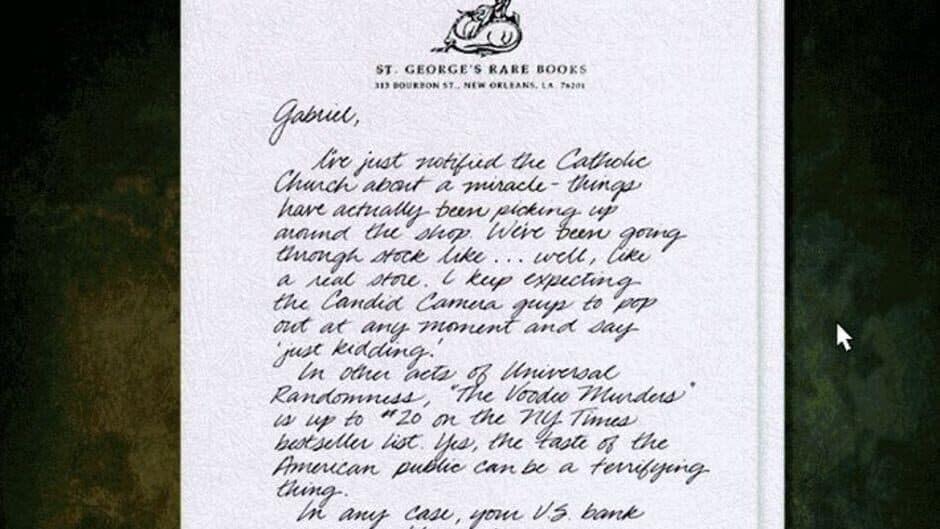 ST. GEORGE'S RARE BOOKS
315 BOURBON ST., NEW ORLEANS, LA. 76201
Gabriel,
I've just notified the Catholic
Church about a miracle - things
have actually been picking up
around the shop. We've been going
through stock like . . . well, like
a real store. I keep expecting
the Candid Camera guys to pop
out at any moment and say
'just kidding.'
In other acts of Universal
Randomness, "The Voodoo Murders"
is up to #20 on the NY Times
bestseller list. Yes, the taste of the
American public can be a terrifying
thing.
In any case, your U.S. bank